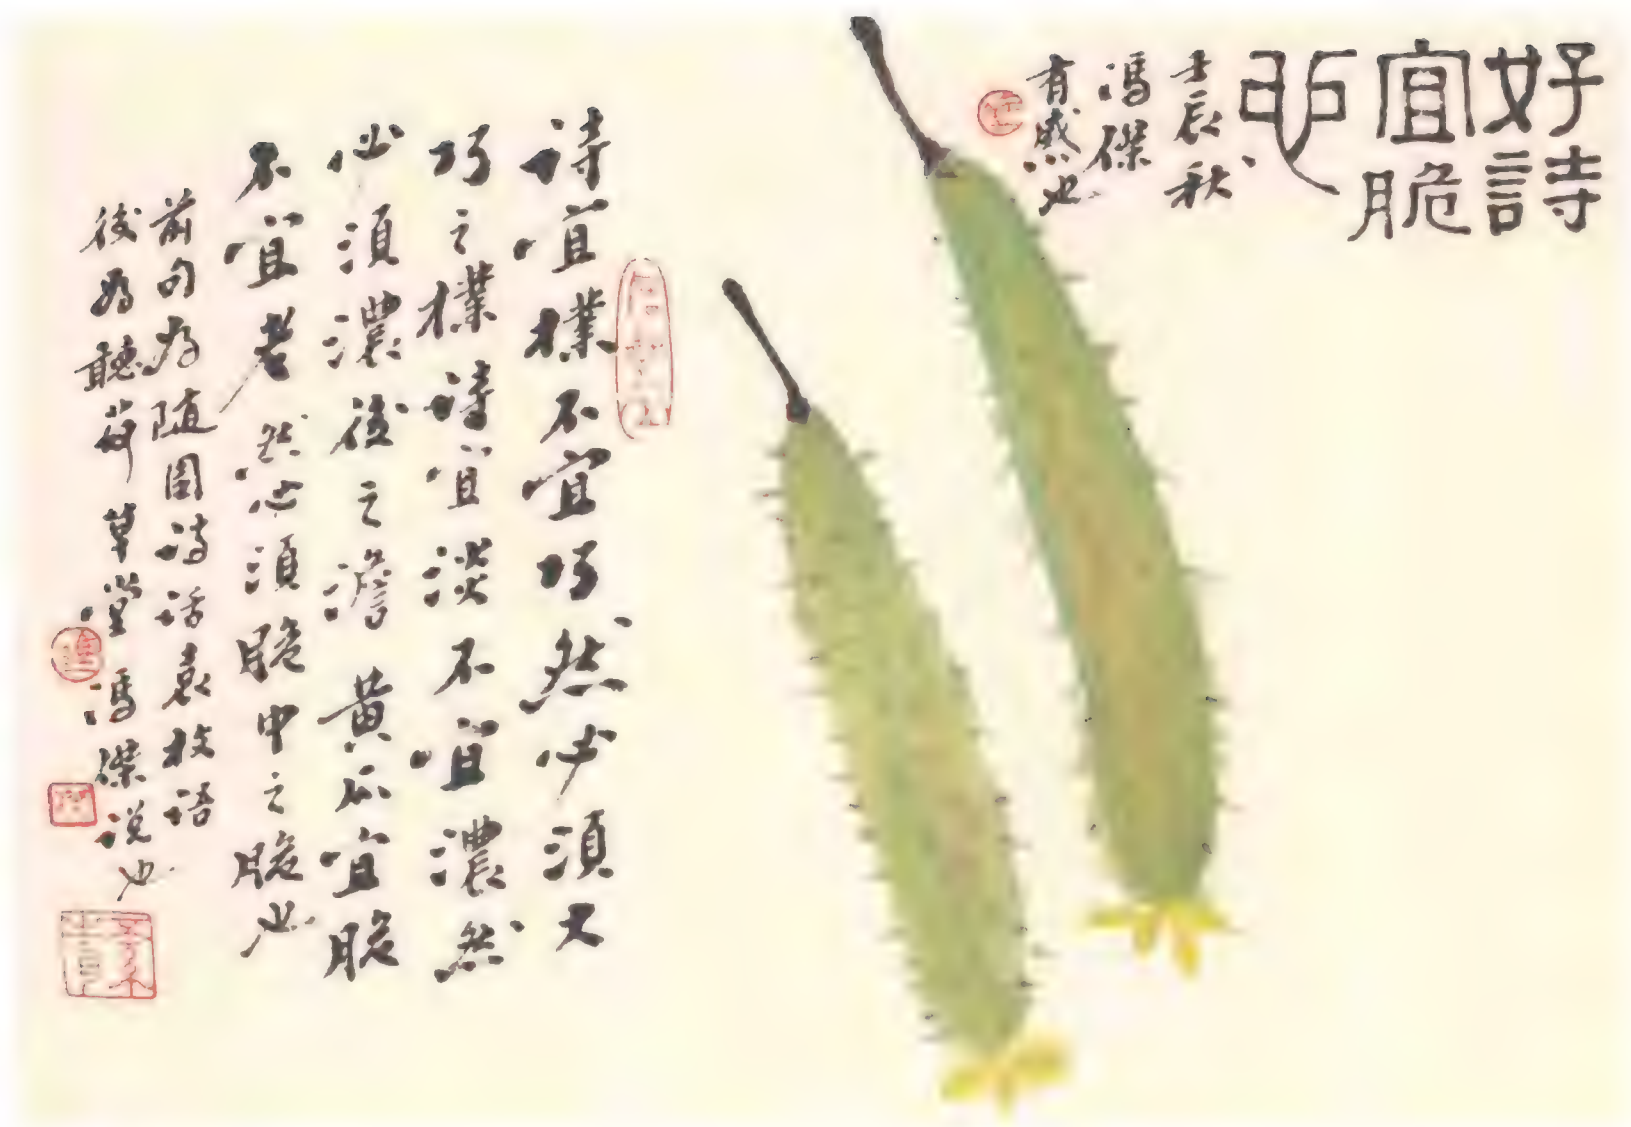 好詩
宜脆
也
壬辰秋
馮傑
有感也
詩宜樸不宜巧然必須大
巧之樸詩宜淡不宜濃然
必須濃後之澹黃瓜宜脆
不宜老然必須脆中之脆也
前句為随園詩話袁枚語
後為聽荷草堂馮傑説也